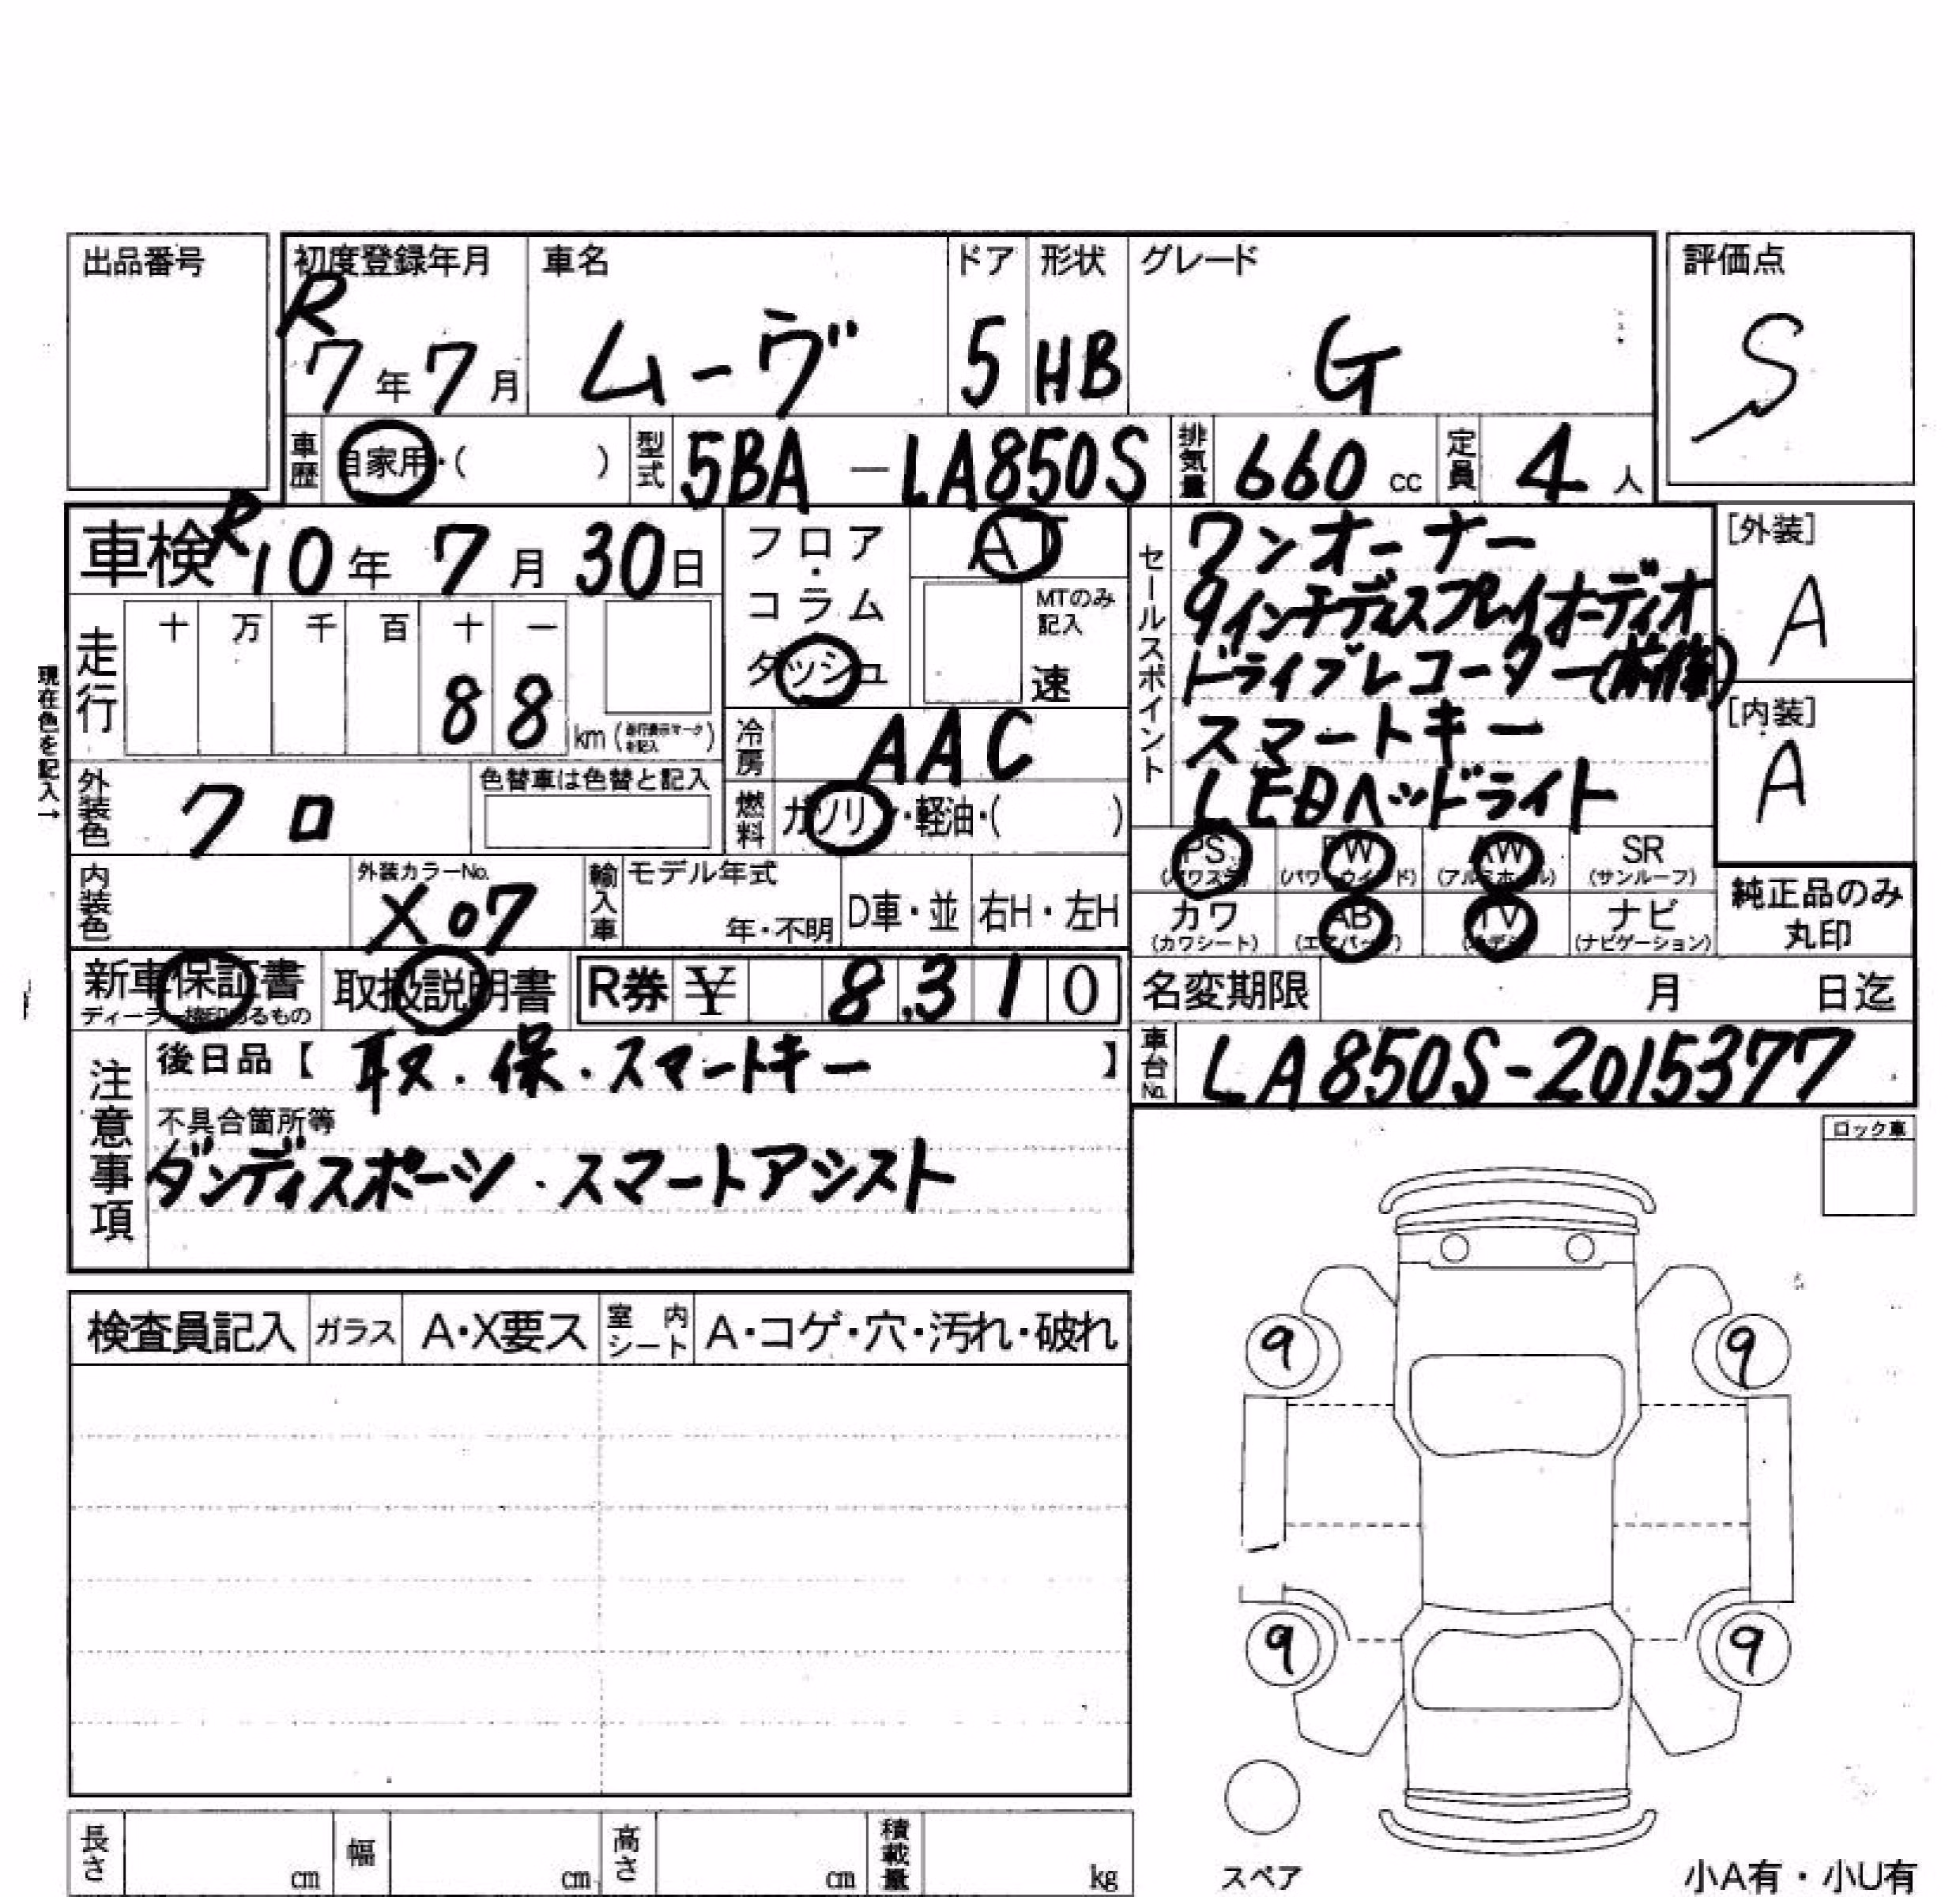 出品番号
初度登録年月 車名 ドア 形状 グレード 評価点
R7年7月 ムーヴ 5 HB G S
車歴 自家用・( ) 型式 5BA-LA850S 排気量 660cc 定員 4人
車検 R10年7月30日 フロア・コラム ダッシュ AT
MTのみ記入 速
走行 十 万 千 百 十 一
88km(走行表示マークを記入)
現在色を記入→
外装色 クロ 色替車は色替と記入
冷房 AAC
燃料 ガソリン・軽油・( )
セールスポイント
ワンオーナー
9インチディスプレイオーディオ
ドライブレコーダー(前後)
スマートキー
LEDヘッドライト
[外装]
A
[内装]
A
内装色 外装カラーNo. X07 輸入車 モデル年式 年・不明 D車・並 右H・左H
PS(パワステ) PW(パワーウインド) AW(アルミホイル) SR(サンルーフ)
カワ(カワシート) AB(エアバッグ) TV(カラテレビ) ナビ(ナビゲーション)
純正品のみ丸印
新車保証書 ディーラー捺印あるもの 取扱説明書 R券 ¥ 8,310
名変期限 月 日迄
車台No. LA850S-2015377
注意事項
後日品【取.保.スマートキー】
不具合箇所等
ダンディスポーツ.スマートアシスト
ロック車
検査員記入 ガラス A・X要ス 室内シート A・コゲ・穴・汚れ・破れ
9 9
9 9
スペア
小A有・小U有
長さ cm 幅 cm 高さ cm 積載量 kg